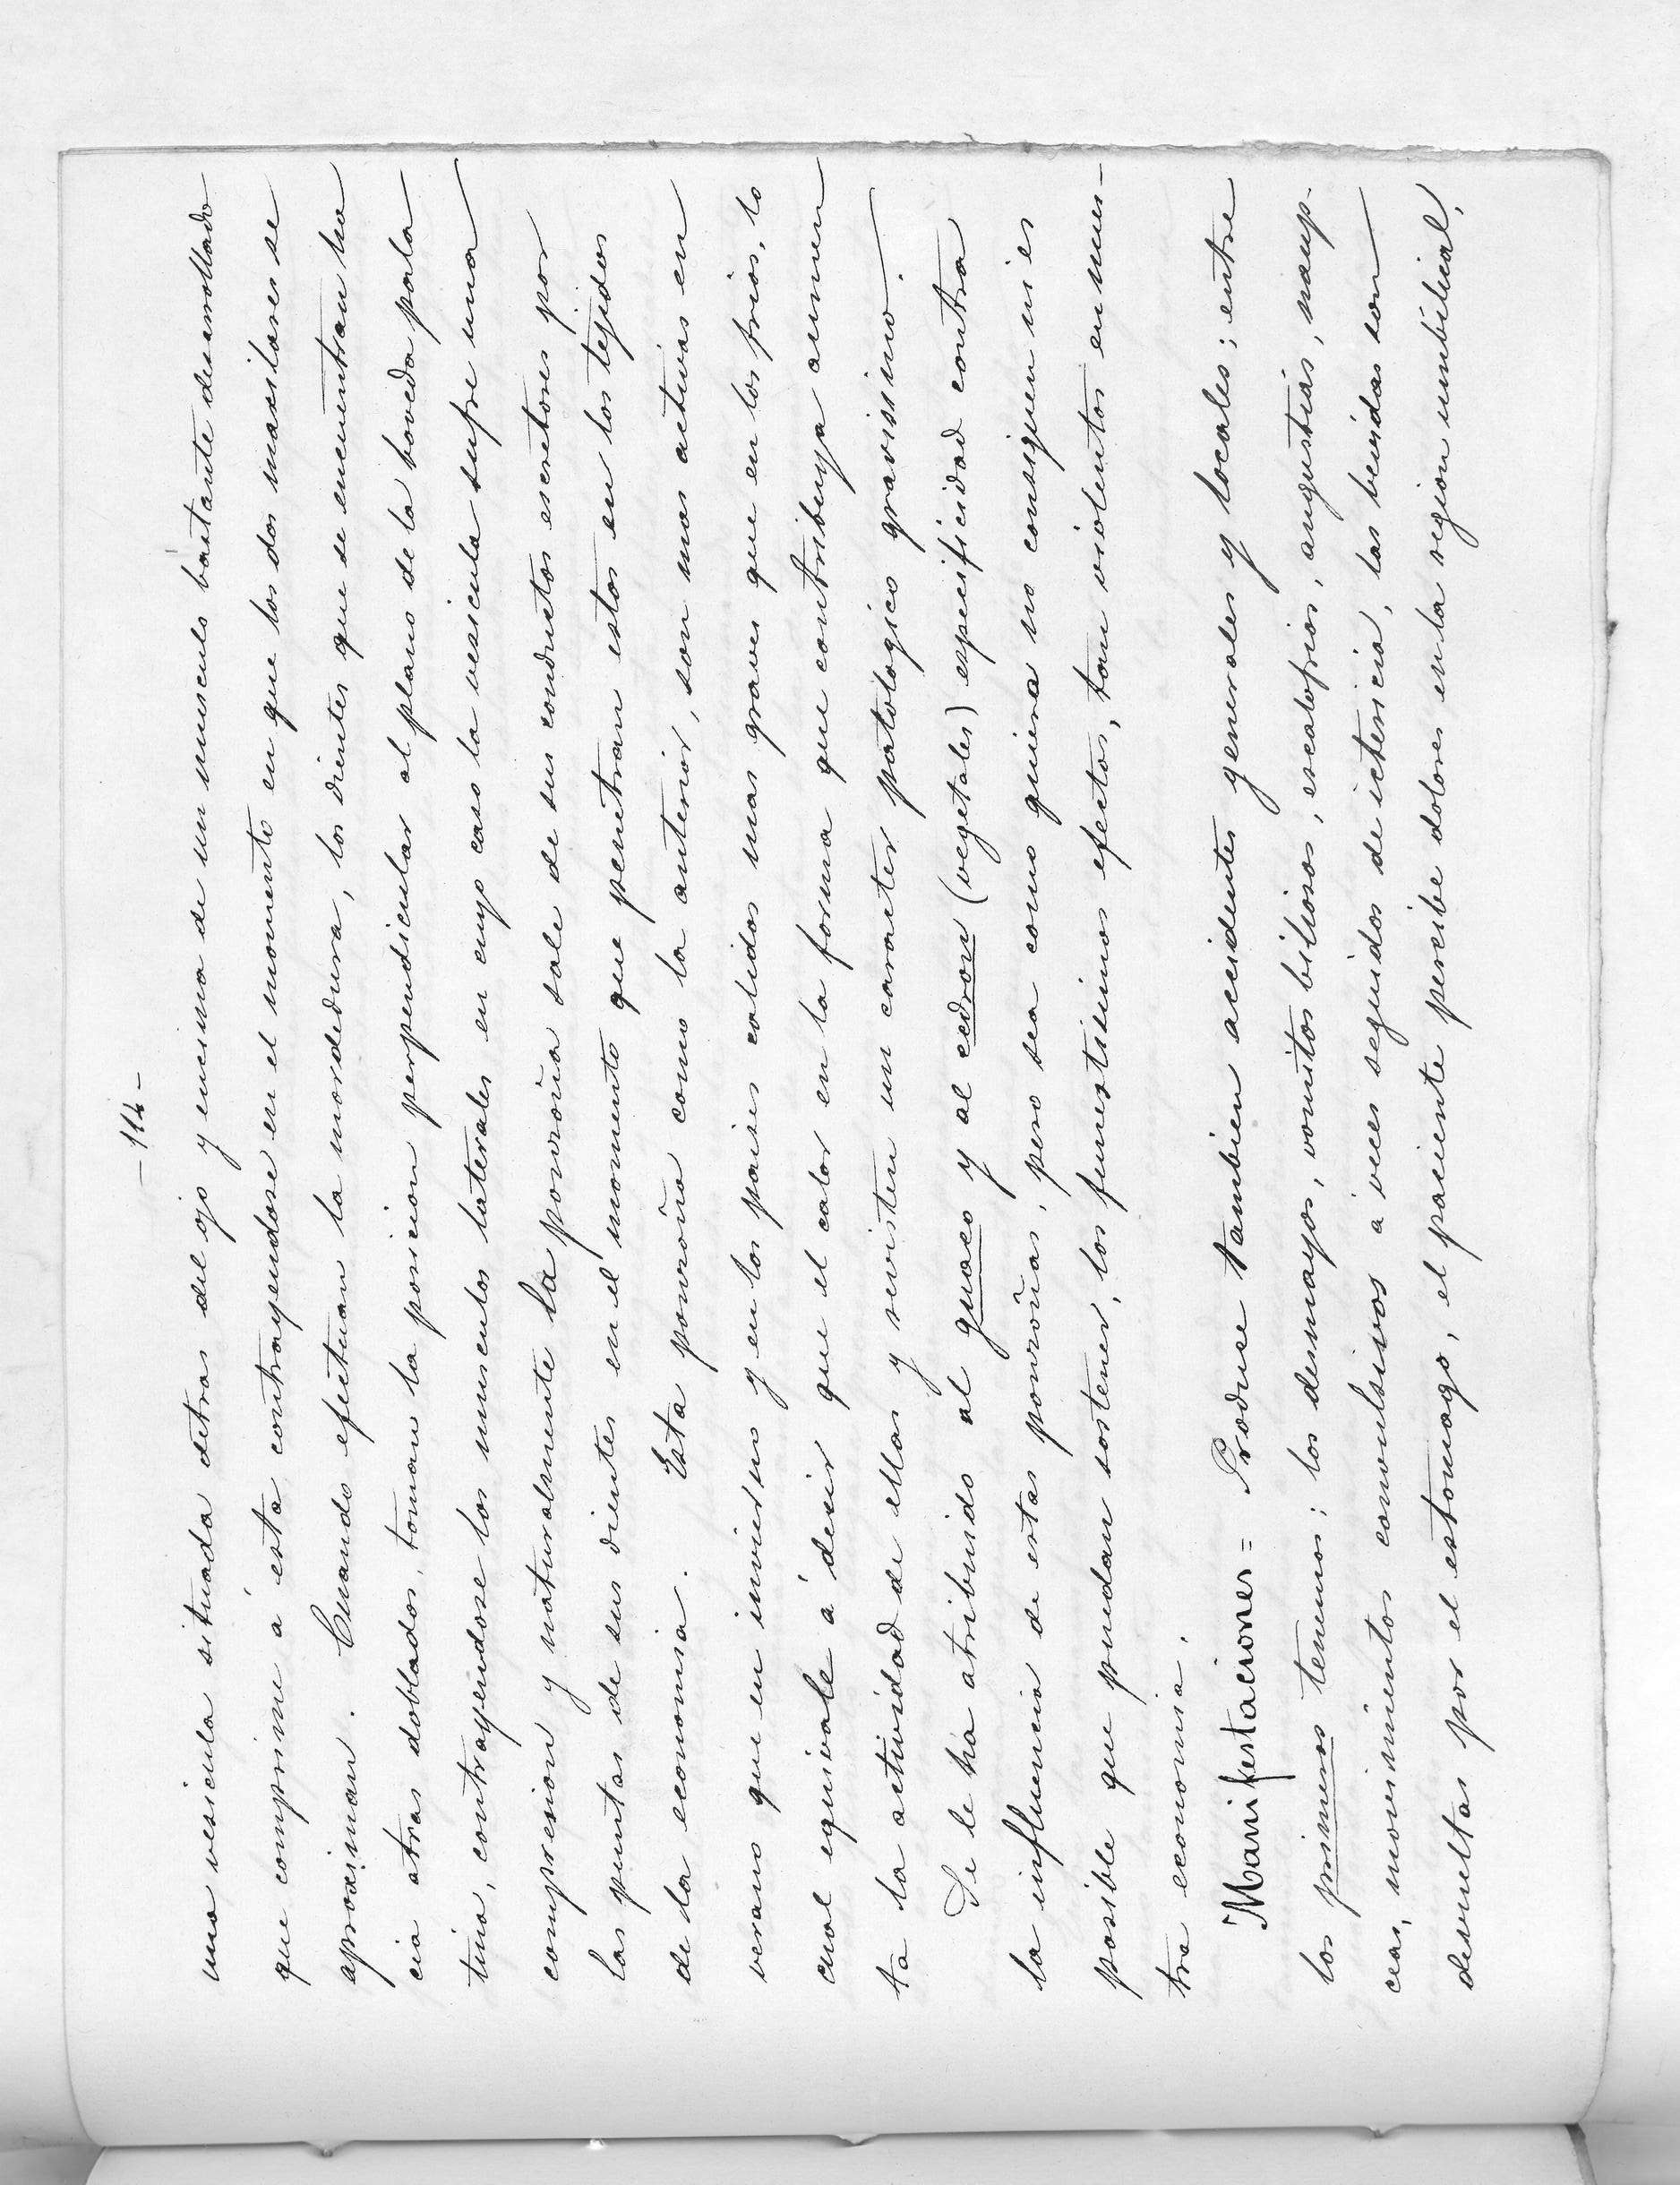 -114-
una vesicula situada detras del ojo y encima de un musculo bastante desarrollado
que comprime á esta contrayendose en el momento en que los dos maxilares se
aproximan. Cuando efectuan la mordedura, los dientes que se encuentran ha
cia atras doblados, toman la posicion perpendicular al plano de la boveda pala
tina, contrayendose los musculos laterales en cuyo caso la vesicula sufre una
compresion y naturalmente la ponzoña sale de sus conductos escretores por
las puntas de sus dientes en el momento que penetran estos en los tejidos
de la economia. Esta ponzoña como la anterior, son mas activas en
verano que en invierno y en los paises calidos mas graves que en los frios, lo
cual equivale á decir que el calor en la forma que contribuya aumen
ta la actividad de ellas y revisten un caracter patologico gravisimo.
Se le ha atribuido al guaco y al cedron (vegetales) especificidad contra
la influencia de estas ponzoñas, pero sea como quiera no consiguen ni es
posible que puedan sostener, los funestisimos efectos, tan violentos en nues-
tra economia.
Manifestaciones = Produce tambien accidentes generales y locales; entre
los primeros tenemos: los desmayos, vomitos biliosos, escalofrios, angustias, naup-
ceas, movimientos convulsivos á veces seguidos de ictericia, las bevidas son
devueltas por el estomago, el paciente percibe dolores en la region umbilical,